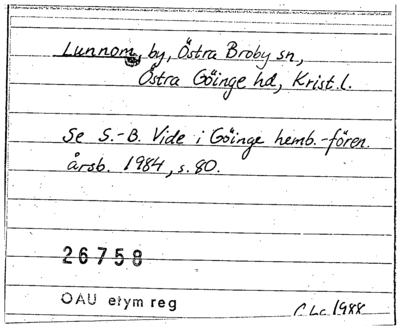 Lunnom, by, Östra Broby sn,
Östra Göinge hd, Krist. l.
Se S.-B. Vide i Göinge hemb.-fören.
årsb. 1984, s. 80.
26758
OAU etym reg
1988